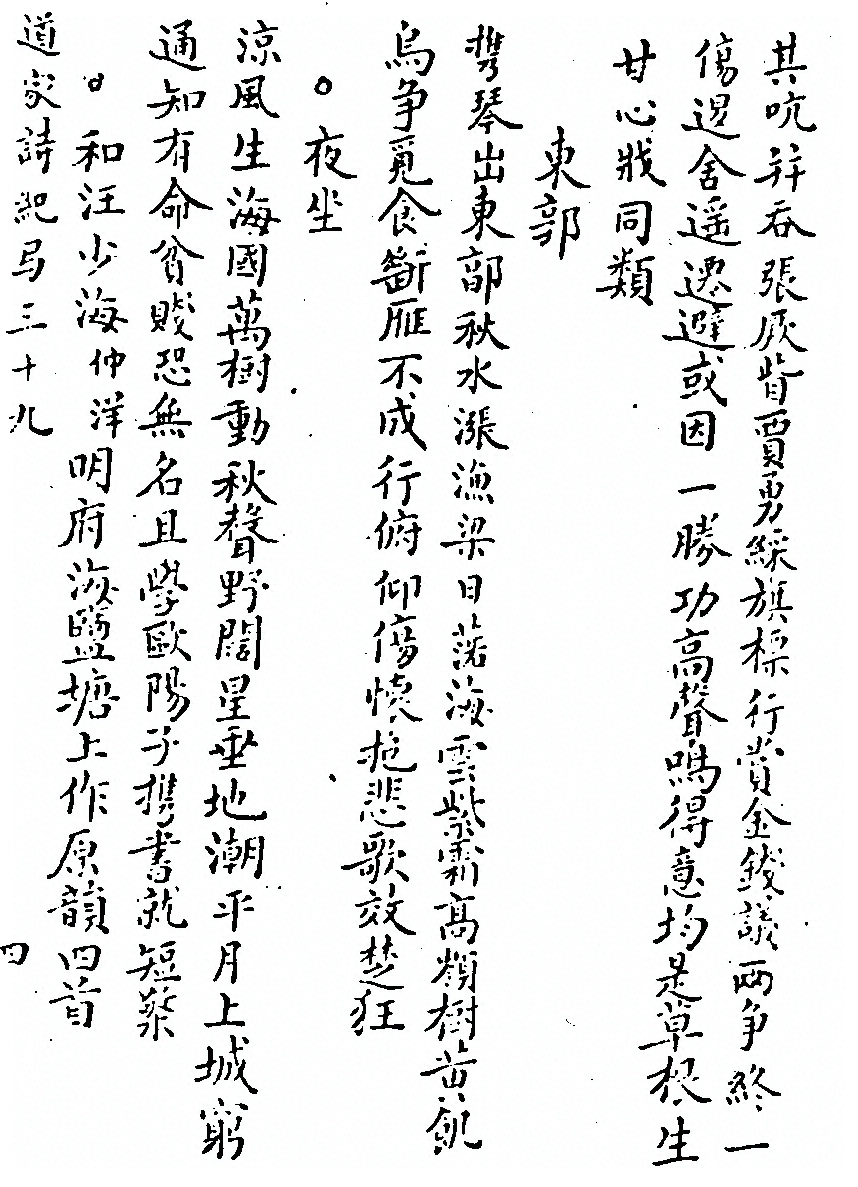 其吭并吞張厥眥賈勇綵旗標行賞金錢議兩爭終一
傷退舍遥遷避或因一勝功高聲鳴得意均是草根生
甘心戕同類
東郭
攜琴出東郭秋水漲漁梁日落海雲紫霜高頹樹黄飢
烏争覓食斷雁不成行俯仰傷懷抱悲歌效楚狂
夜坐
涼風生海國萬樹動秋聲野闊星垂地潮平月上城窮
通知有命貧賤恐無名且學歐陽子携書就短檠
和汪少海仲洋明府海鹽塘上作原韻四首
道家詩紀弓三十九
四